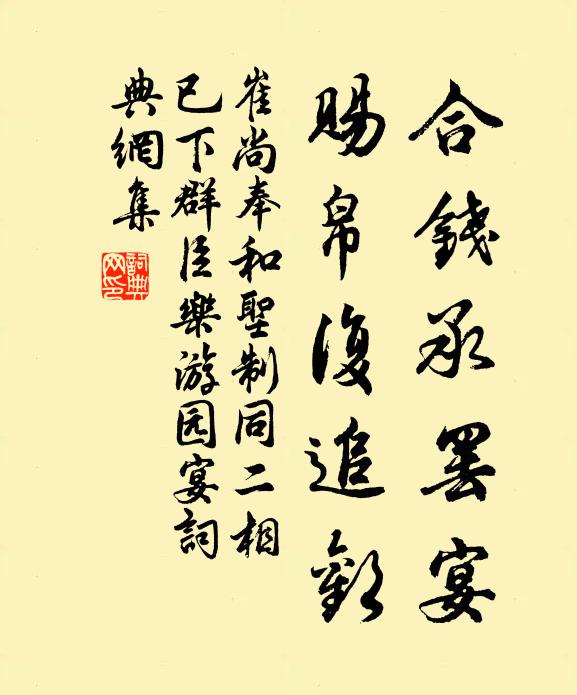 合錢承罷宴
賜帛復追歡
崔尚奉和聖制同二相
已下群臣樂游园宴詞
典網集
詞典
网印